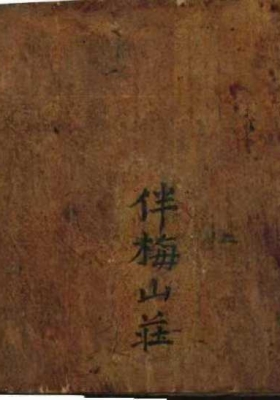 伴梅山莊